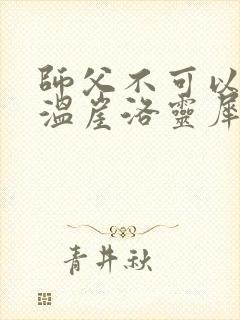 師父不可以
溫崖洛靈犀
青井秋